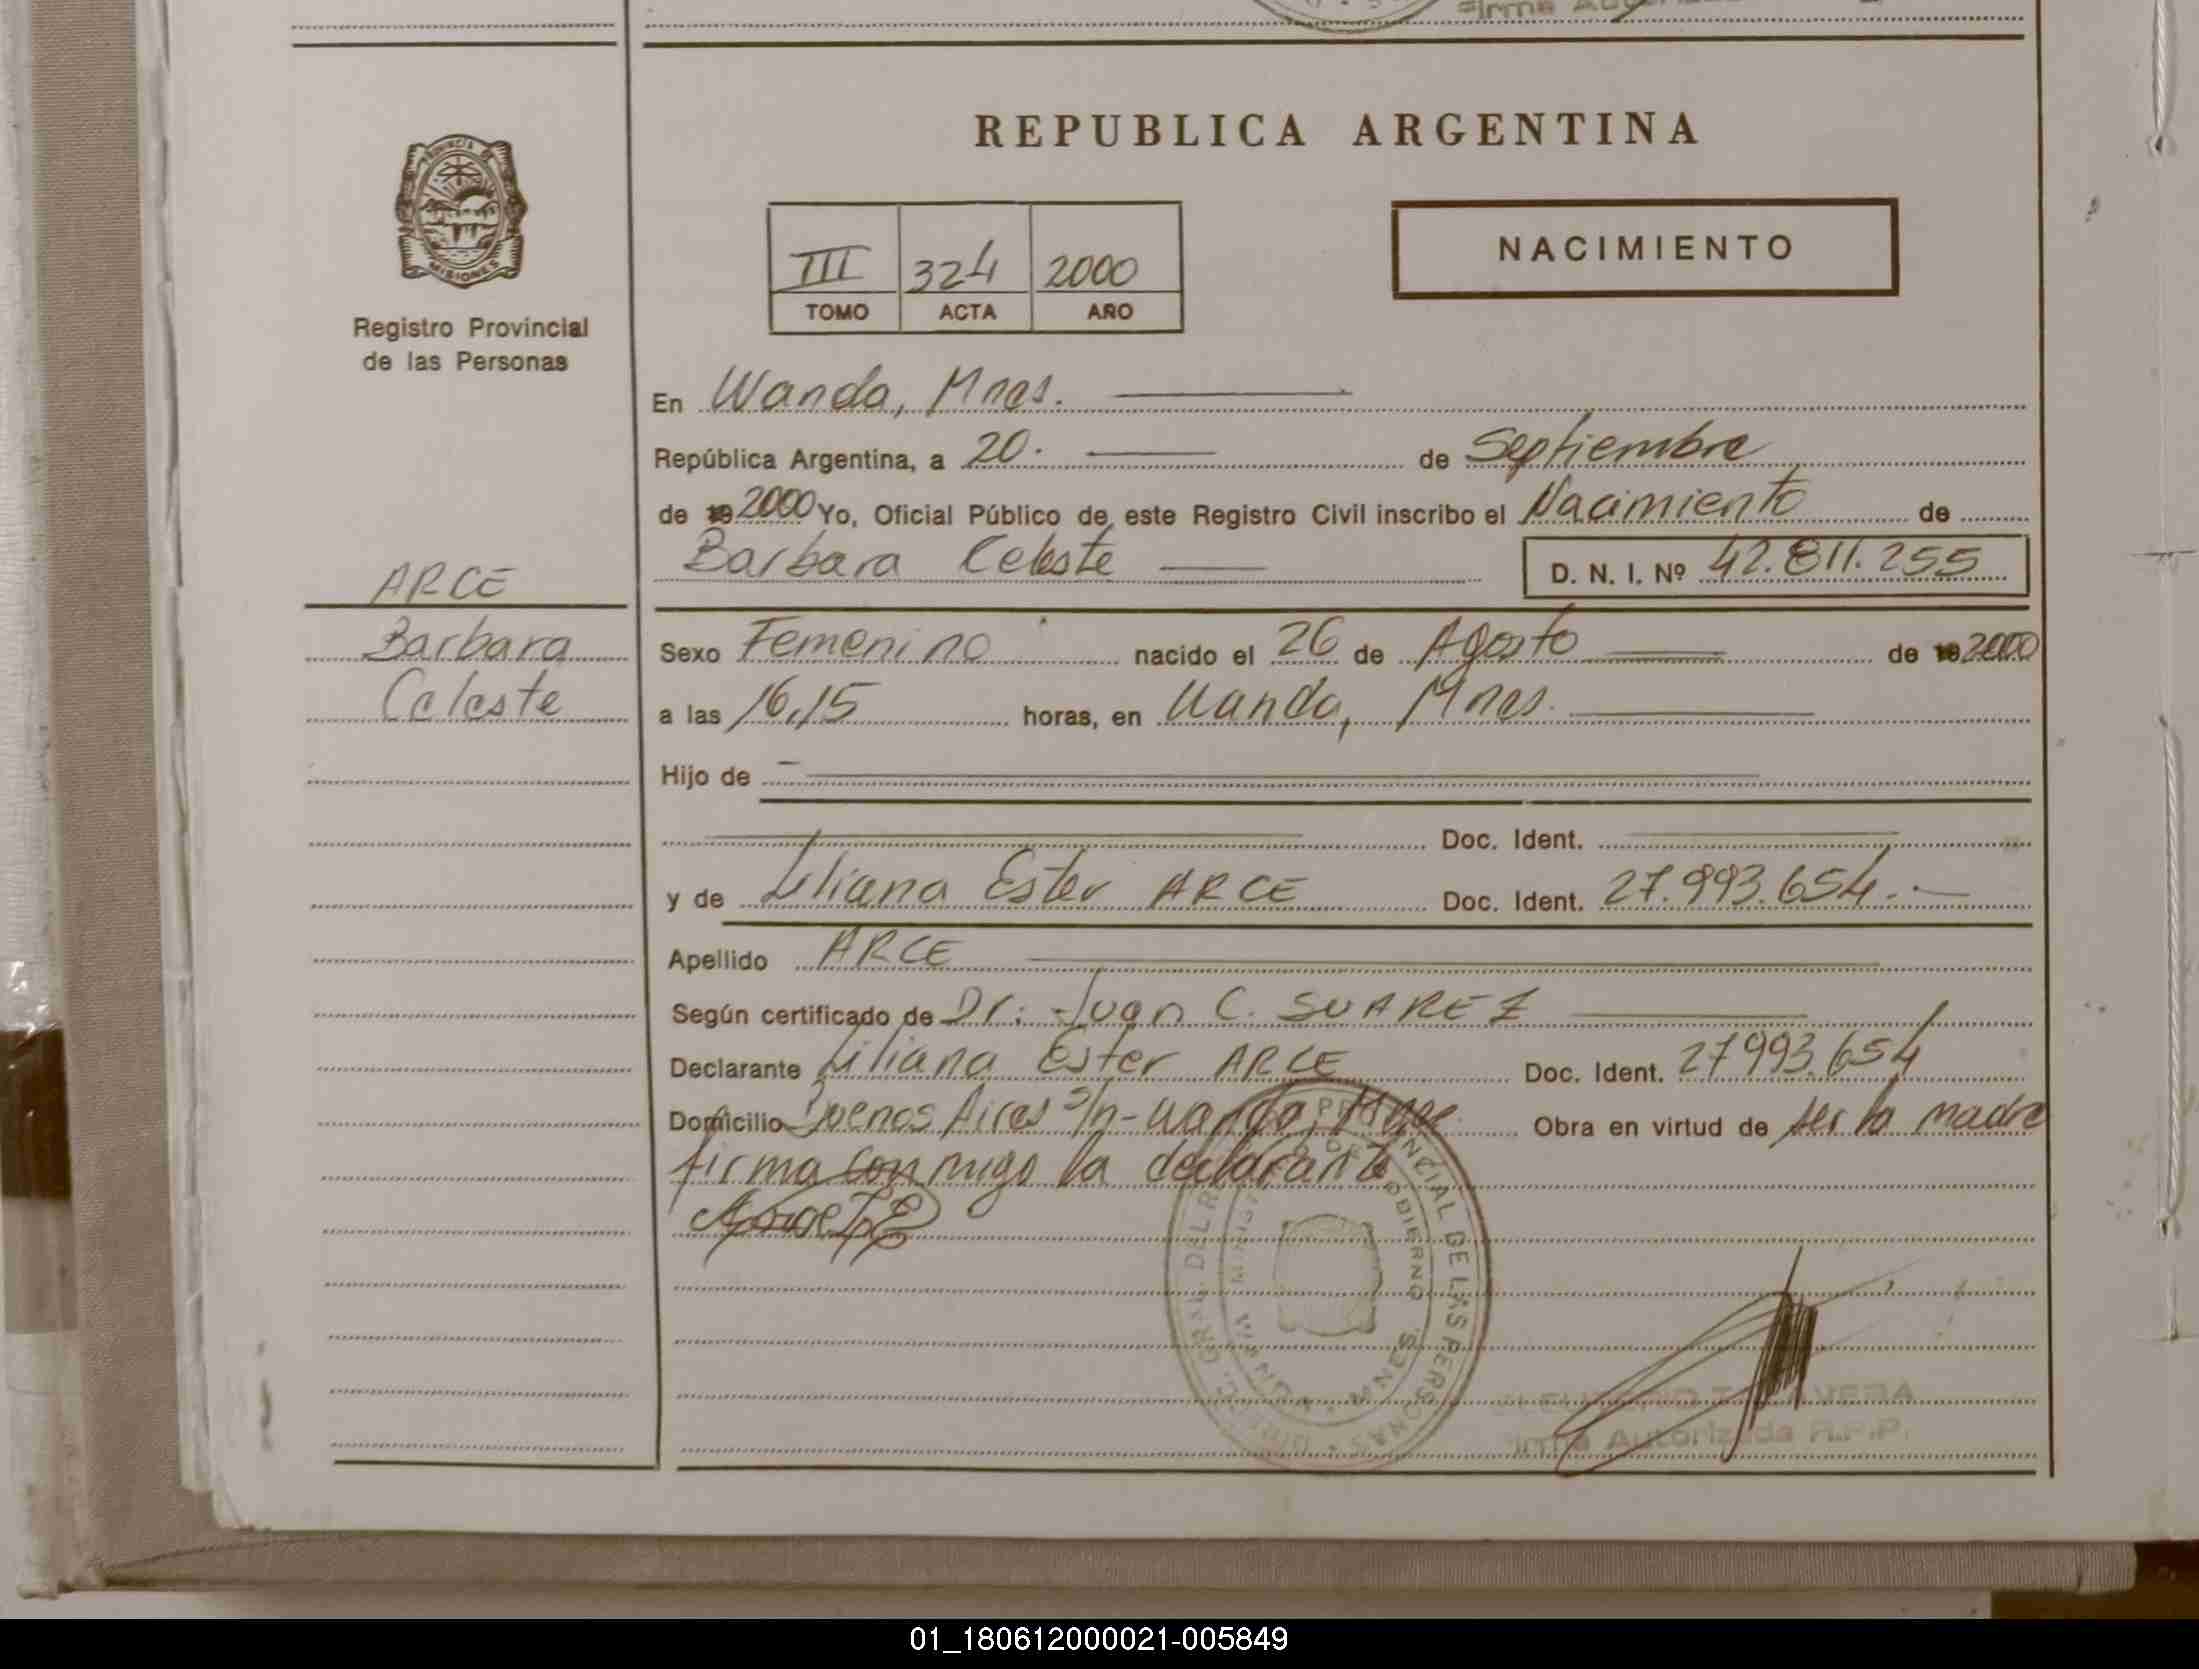 Firma
REPUBLICA ARGENTINA
PROVINCIA DE
MISIONES
Registro Provincial
de las Personas
NACIMIENTO
III 324 2000
TOMO ACTA AÑO
En Wanda, Mnes.
República Argentina, a 20. de Septiembre
de 19 2000 Yo, Oficial Público de este Registro Civil inscribo el Nacimiento de
Barbara Celeste D. N. I. Nº 42.811.255
ARCE
Barbara
Celeste
Sexo Femenino nacido el 26 de Agosto de 19 2000
a las 16,15 horas, en Wanda, Mnes.
Hijo de
Doc. Ident.
y de Liliana Ester ARCE Doc. Ident. 27.993.654.
Apellido ARCE
Según certificado de Dr. Juan C. SUAREZ
Declarante Liliana Ester ARCE Doc. Ident. 27993.654
Domicilio Buenos Aires s/n - Wanda, Mnes. Obra en virtud de ser la madre
firma conmigo la declarante
Arce L E
PROVINCIAL DE LAS PERSONAS
GOBIERNO
MNES.
TALAVERA
Firma Autorizada R.P.P.
01_180612000021-005849